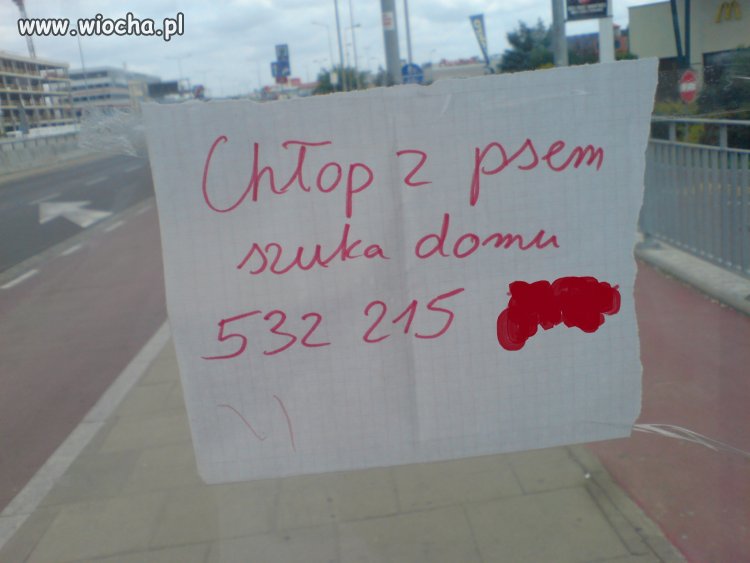 www.wiocha.pl
Chłop z psem
szuka domu
532 215